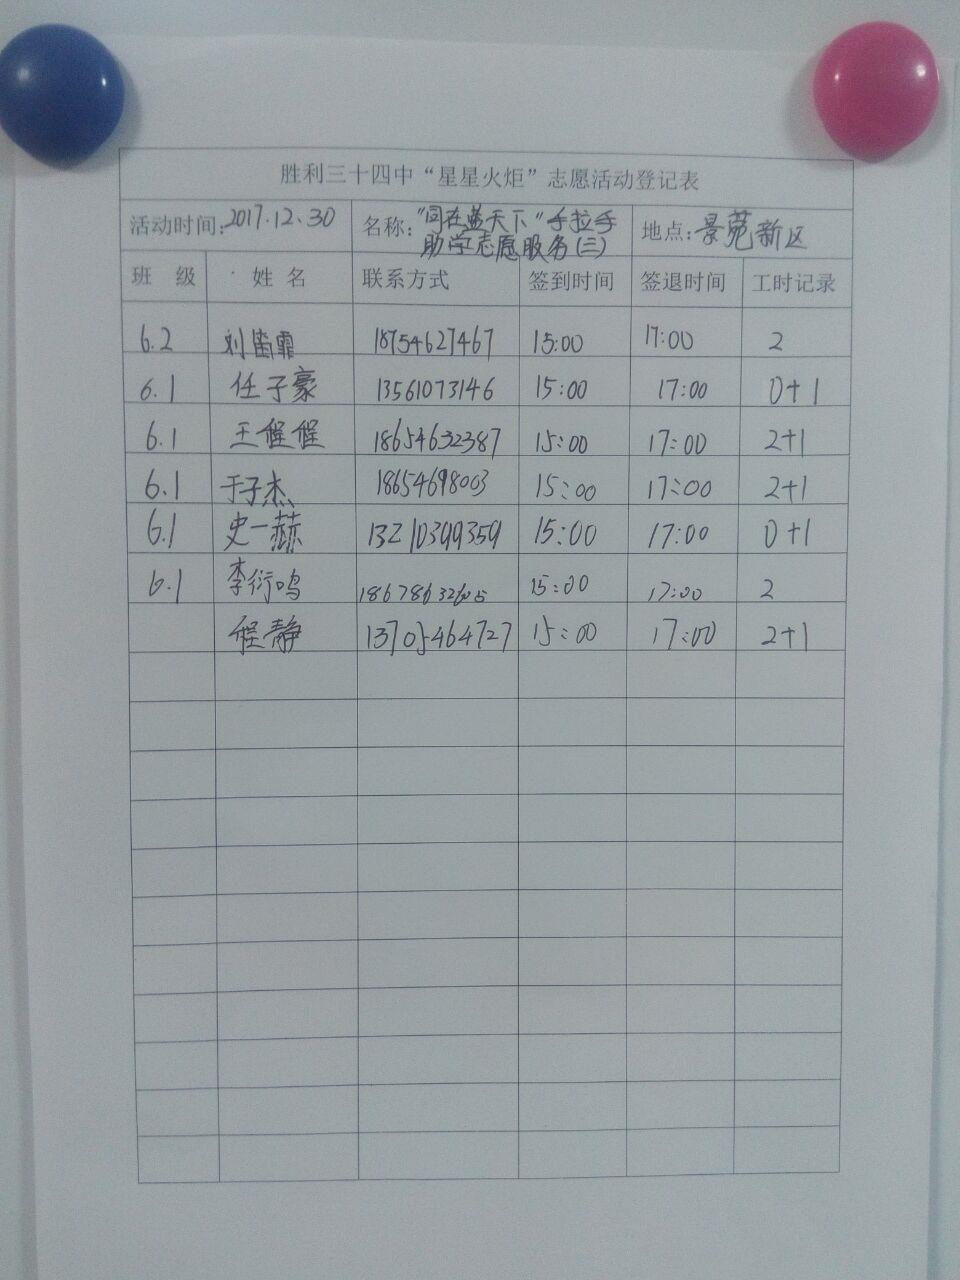 胜利三十四中“星星火炬”志愿活动登记表
活动时间:2017.12.30 名称:“同在蓝天下”手拉手助学志愿服务(三) 地点:景苑新区
班 级 姓 名 联系方式 签到时间 签退时间 工时记录
6.2 刘 霏 18754627467 15:00 17:00 2
6.1 任子豪 13561073146 15:00 17:00 0+1
6.1 王偍偍 18654632387 15:00 17:00 2+1
6.1 于子杰 18654698003 15:00 17:00 2+1
6.1 史一赫 13210399359 15:00 17:00 0+1
6.1 李衍鸣 18678632605 15:00 17:00 2
程静 13705464727 15:00 17:00 2+1